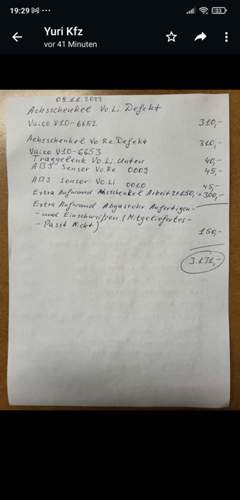 19:29
53
Yuri Kfz
vor 41 Minuten
Achsschenkel Vo.Li. Defekt
Vaico V10-6652 310,-
Achsschenkel Vo.Re. Defekt 310,-
Vaico V10-6653
Traggelenk Vo.Li. Unten 40,-
ABS Sensor Vo.Re 0009 45,-
ABS Sensor Vo.Li 0010 45,-
Extra Aufwand Achsschenkel Arbeit 2x150,- = 300,-
Extra Aufwand Abgasrohr Anfertigen-
- und Einschweißen (Mitgeliefertes-
- Passt Nicht) 150,-